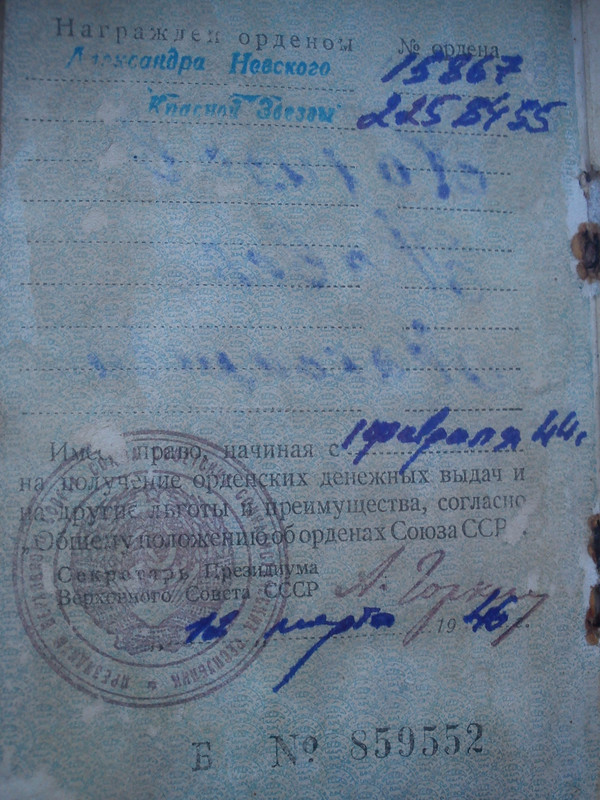 Награжден орденом № ордена
Александра Невского 15867
Красной Звезды 2258455
Имеет право, начиная с 1 февраля 44 г
на получение орденских денежных выдач и
на другие льготы и преимущества, согласно
„Общему положению об орденах Союза ССР".
Секретарь Президиума
Верховного Совета СССР А. Горкин
12 марта 1946
Б № 859552